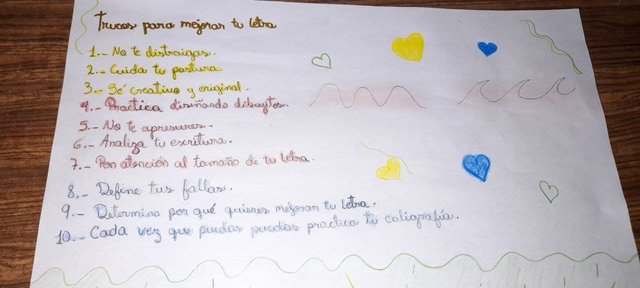 Trucos para mejorar tu letra
1.- No te distraigas.
2.- Cuida tu postura.
3.- Sé creativo y original.
4.- Practica diseñando dibujitos.
5.- No te apresures.
6.- Analiza tu escritura.
7.- Pon atención al tamaño de tu letra.
8.- Define tus fallas.
9.- Determina por qué quieres mejorar tu letra.
10.- Cada vez que puedas puedas practica tu caligrafía.